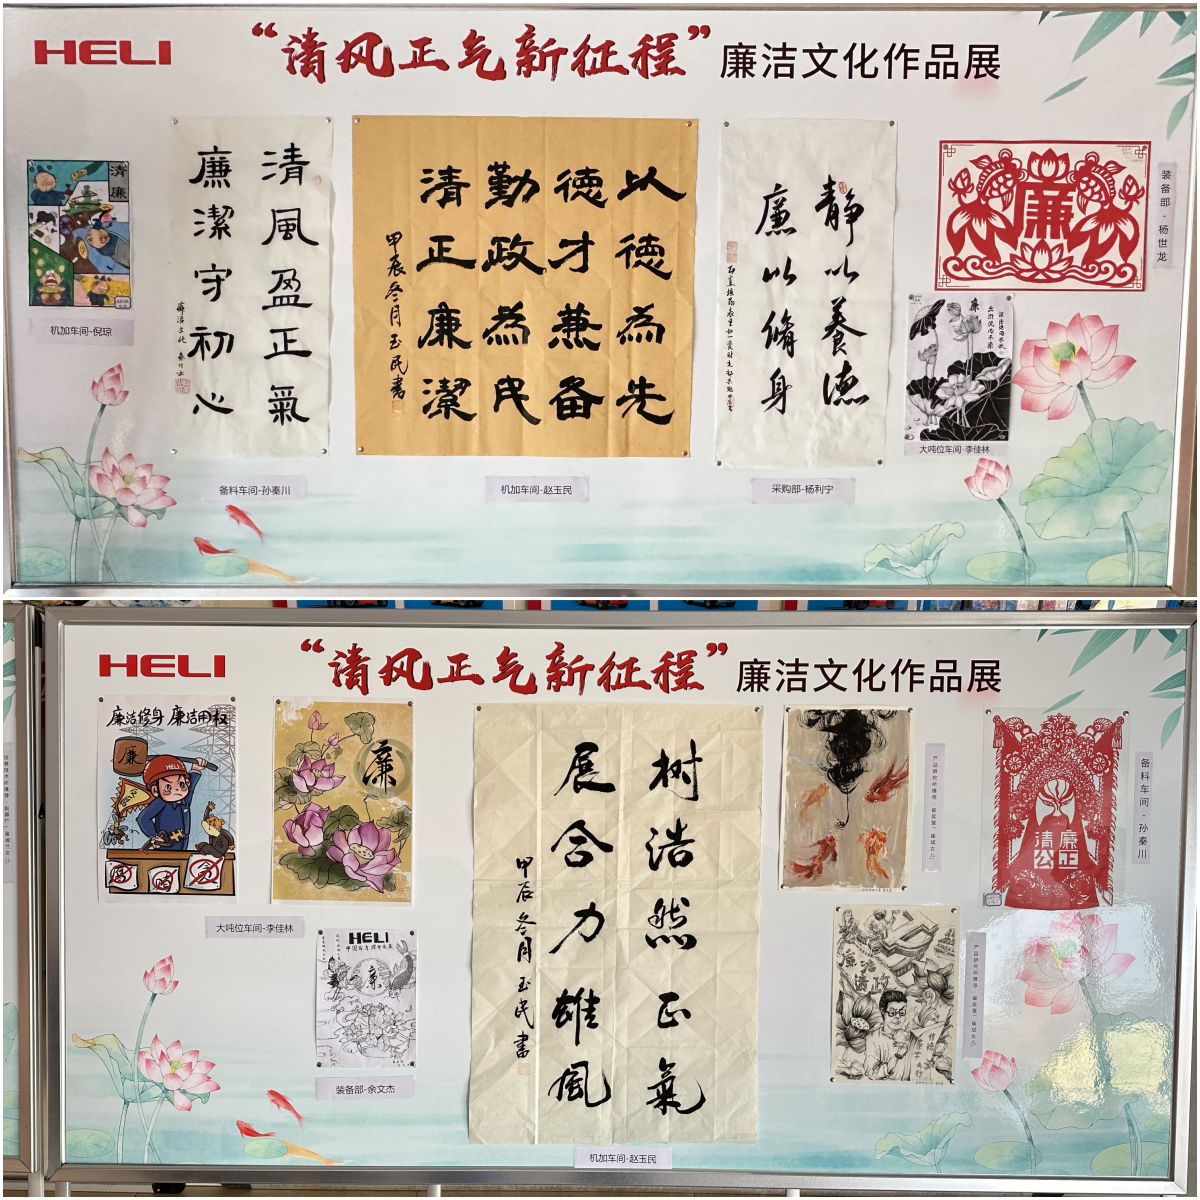 HELI
“清风正气新征程”廉洁文化作品展
清廉
机加车间-倪琼
清風盈正氣
廉潔守初心
备料车间-孙秦川
以德為先
德才兼备
勤政為民
清正廉潔
甲辰冬月玉民書
机加车间-赵玉民
静以養德
廉以脩身
采购部-杨利宁
廉
装备部-杨世龙
廉
大吨位车间-李佳林
HELI
“清风正气新征程”廉洁文化作品展
廉洁修身 廉洁用权
廉
HELI
廉
大吨位车间-李佳林
HELI
廉
装备部-余文杰
树浩然正氣
展合力雄風
甲辰冬月玉民書
机加车间-赵玉民
廉洁
清政
清廉
公正
备料车间-孙秦川